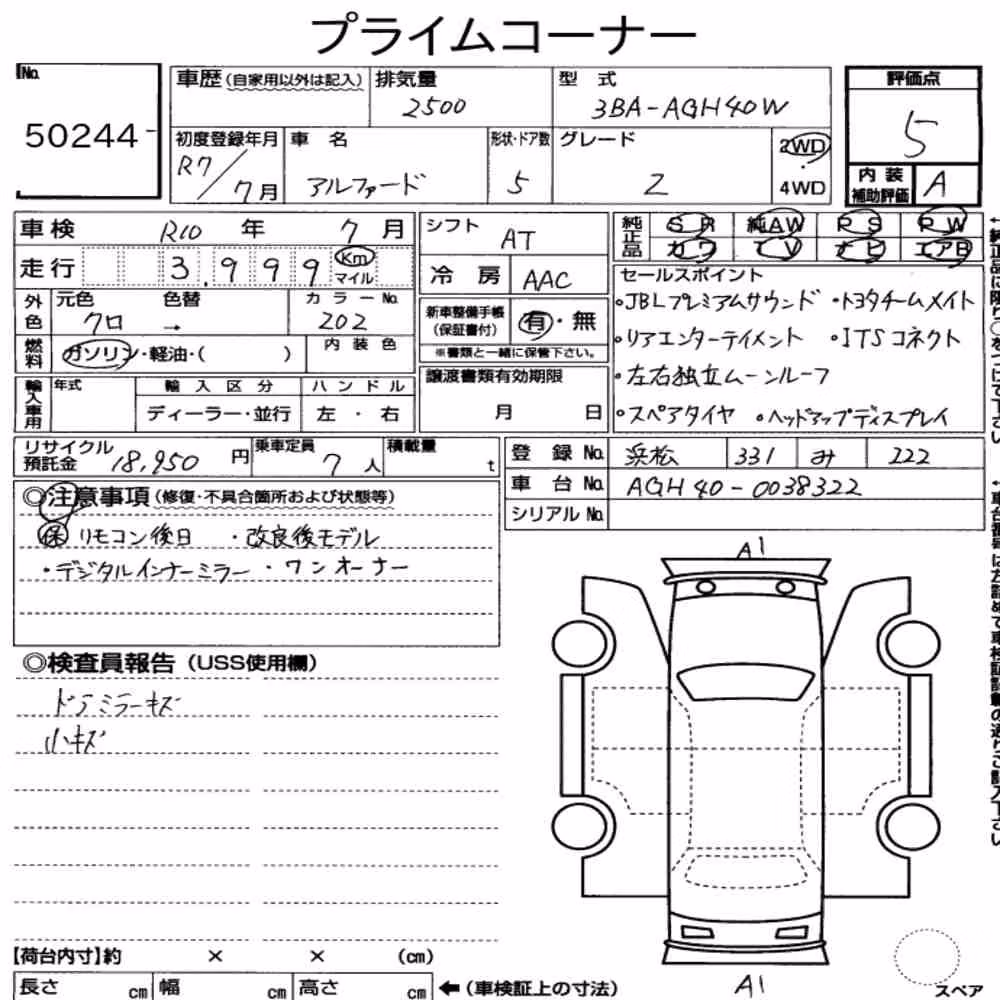 プライムコーナー
No.
50244-
車歴(自家用以外は記入) 排気量 型式 評価点
2500 3BA-AGH40W 5
初度登録年月 車名 形状・ドア数 グレード 2WD
R7/7月 アルファード 5 Z 4WD
内装補助評価 A
車検 R10年 7月 シフト AT 純正品 SR 純AW PS PW
カワ TV ナビ エアB
走行 3,999 Km マイル 冷房 AAC セールスポイント
外色 元色 色替 カラーNo. 新車整備手帳(保証書付) 有・無
クロ → 202 ※書類と一緒に保管下さい。
・JBLプレミアムサウンド ・トヨタチームメイト
燃料 ガソリン・軽油・( ) 内装色 ・リアエンターテイメント ・ITSコネクト
輸入車用 年式 輸入区分 ハンドル 譲渡書類有効期限 ・左右独立ムーンルーフ
ディーラー・並行 左・右 月 日 ・スペアタイヤ ・ヘッドアップディスプレイ
リサイクル預託金 18,950円 乗車定員 7人 積載量 t 登録No. 浜松 331 み 222
車台No. AGH40-0038322
シリアルNo.
◎注意事項(修復・不具合箇所および状態等)
保 リモコン後日 ・改良後モデル
・デジタルインナーミラー ・ワンオーナー
◎検査員報告(USS使用欄)
ドアミラーキズ
小キズ
A1
A1
【荷台内寸】約 × × (cm)
長さ cm 幅 cm 高さ cm ←(車検証上の寸法)
スペア
←純正品に限り○をつけて下さい
←車台番号は左詰めで車検証記載の通りご記入下さい